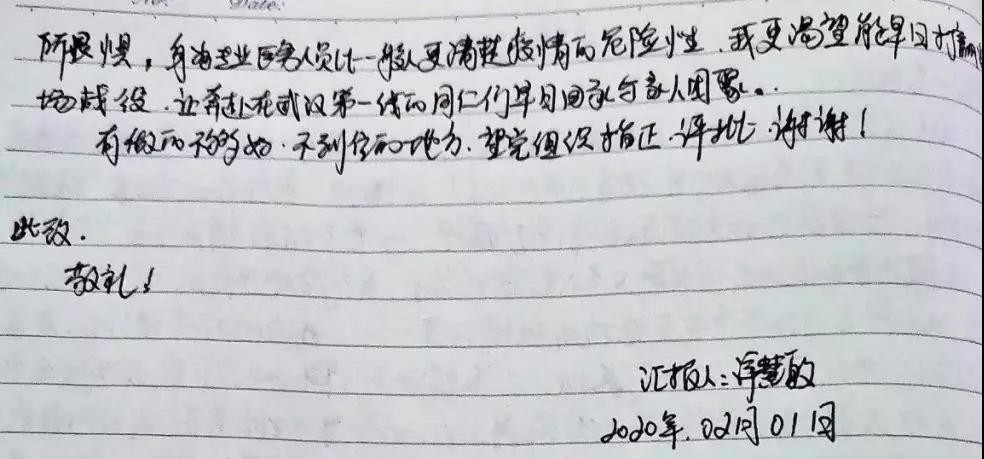 Date:
所畏惧，身为专业医务人员比一般人更清楚疫情的危险性.我更渴望能早日打赢
场战役.让奔赴在武汉第一线的同仁们早日回来与家人团聚。.
有做的不够好.不到位的地方.望党组织指正.评批.谢谢！
此致.
敬礼！
汇报人：慧敏
2020年.02月01日